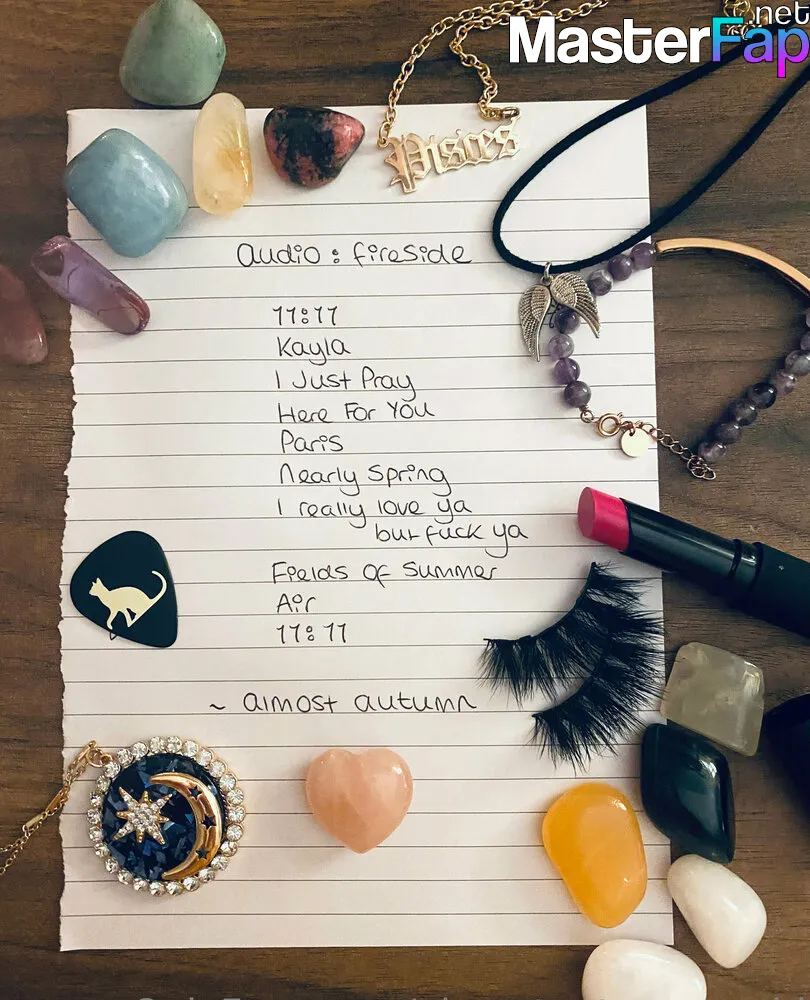 .net
MasterFap
Pisces
audio : fireside
11:11
Kayla
I Just Pray
Here For You
Paris
Nearly Spring
I really love ya
but fuck ya
Fields Of Summer
Air
11:11
~ almost autumn